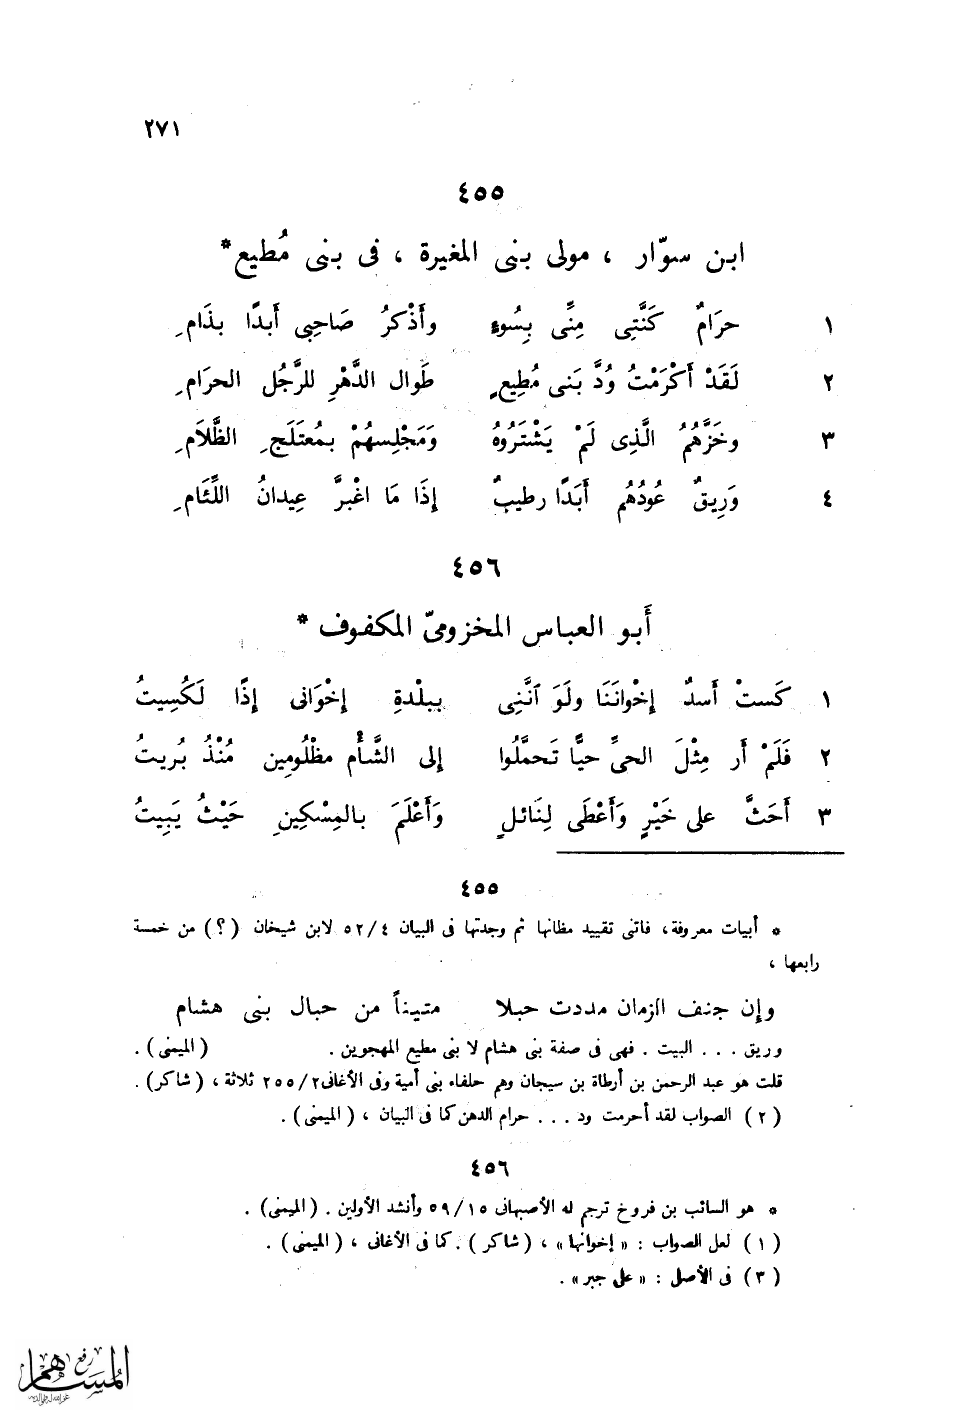 ٢٧١
٤٥٥
ابن سوّار ، مولى بنى المغيرة ، فى بنى مُطيع*
١ حرَامٌ كَنَّتِى مِنِّى بِسُوءٍ وأَذْكرُ صَاحِبِى أَبدًا بذَامِ
٢ لَقَدْ أَكْرَمْتُ وُدَّ بَنى مُطِيعٍ طَوال الدَّهْرِ للرَّجُل الحرَامِ
٣ وخَزَّهُمُ الَّذِى لَمْ يَشْتَرُوهُ وَمَجْلِسهُمْ بمُعتَلَجِ الظَّلاَمِ
٤ وَرِيقٌ عُودُهُم أَبَدًا رطيبٌ إِذَا مَا اغْبرَّ عِيدانُ اللِّئَامِ
٤٥٦
أَبو العباس المخزومىّ المكفوف *
١ كَستْ أَسدٌ إِخْوانَنَا ولَوَ ٱنَّنِى ببلْدةِ إِخْوَانى إِذًا لَكُسِيتُ
٢ فَلَمْ أَر مِثْلَ الحىِّ حيًّا تَحمَّلُوا إلى الشَّأْم مظْلُومِين مُنْذُ بُريتُ
٣ أَحَثَّ على خَيْرٍ وَأَعْطَى لِنَائلٍ وَأَعْلَمَ بالمِسْكِينِ حَيْثُ يَبِيتُ
٤٥٥
* أبيات معروفة، فاتنى تقييد مظانها ثم وجدتها فى البيان ٥٢/٤ لابن شيخان (؟) من خمسة
رابعها ،
وإن جنف الزمان مددت حبلا متيناً من حبال بنى هشام
وريق . . . البيت . فهى فى صفة بنى هشام لا بنى مطيع المهجوين . (الميمنى) .
قلت هو عبد الرحمن بن أرطاة بن سيجان وهم حلفاء بنى أمية وفى الأغانى ٢٥٥/٢ ثلاثة ، (شاكر) .
(٢) الصواب لقد أحرمت ود . . . حرام الدهن كما فى البيان ، (الميمنى) .
٤٥٦
* هو السائب بن فروخ ترجم له الأصبهانى ٥٩/١٥ وأنشد الأولين . (الميمنى) .
(١) لعل الصواب : «إخوانها» ، (شاكر) . كما فى الأغانى ، (الميمنى) .
(٣) فى الأصل : «على جبر» .
رفع
المساهم